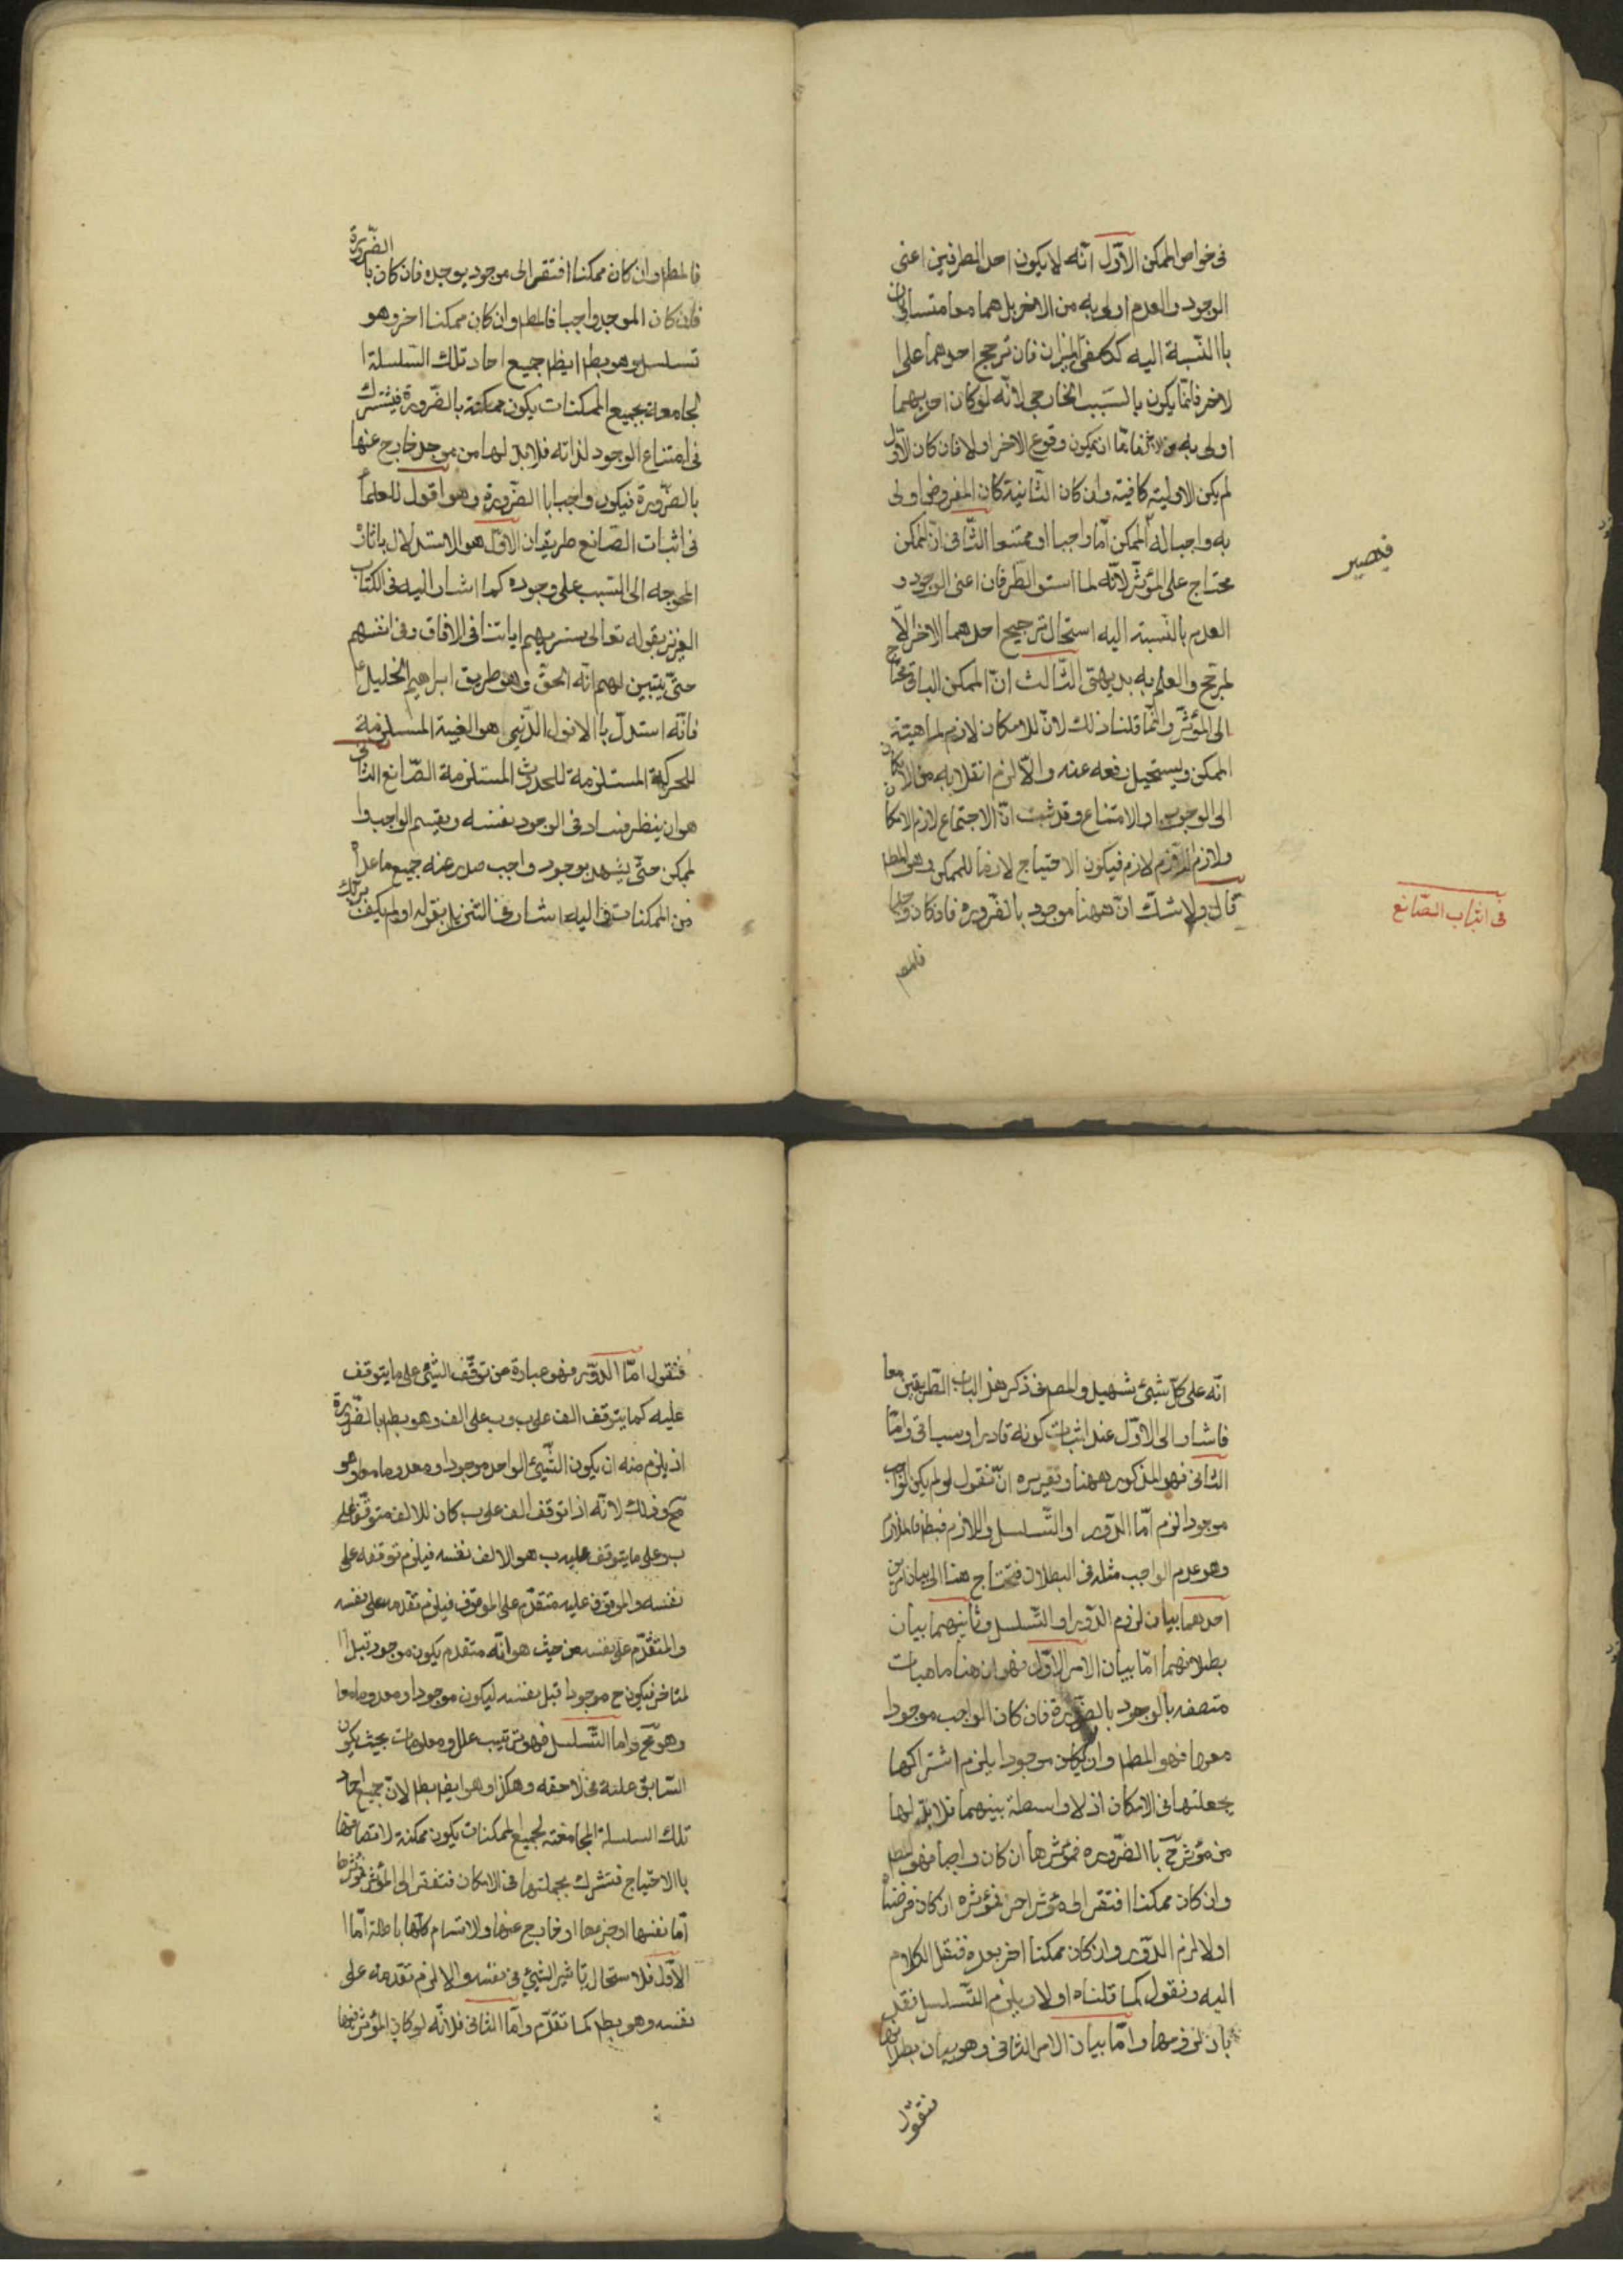 فى خواص الممكن الاوّل انّه لا يكون احد الطرفين اعنى
الوجود والعدم اولى به من الاخر بل هما معا متساويان
باالنّسبة اليه ككفتى الميزان فان ترجح احدهما على ا
لاخر فانّما يكون بالسّبب الخارجى لانّه لو كان احديهما
اولى به من الاخر فامّا ان يمكن وقوع الاخر اولا فان كان الاوّل
لم يكن الاولية كافية وان كان الثّانية كان المفروض اولى
به واجبا له فالممكن امّا واجبا او ممتنعا الثّانى انّ الممكن
محتاج على المؤثّر لانّه لما استوى الطّرفان اعنى الوجود و
العدم بالنّسبة اليه استحال ترجيح احدهما الاخر الاّ
لمرجّح والعلم به بديهىّ الثّالث انّ الممكن الباقى محتاج
الى المؤثّر وانّما قلنا ذلك لانّ للامكان لازم لماهية
الممكن ويستحيل رفعه عنه والاّ لزم انقلابه من الامكان
الى الوجوب او الامتناع وقد ثبت انّ الاحتياج لازم الامكا
ولازم اللاّزم لازم فيكون الاحتياج لازما للممكن وهو المطم
قال ولا شكّ انّ ههنا موجود بالضّروره فان كان واجبا
فالمطم
فيصير
فى اثبات الصّانع
فالمطم وان كان ممكنا افتقر الى موجود يوجده فان كان بالضّرورة
فان كان الموجد واجبا فالمطم وان كان ممكنا اخر وهو
تسلسل وهو بطم ايظم جميع احاد تلك السّلسلة ا
لجامعة بجميع الممكنات يكون ممكنة بالضّرورة فيشترك
فى امتناع الوجود لذاته فلا بدّ لها من موجد خارج عنها
بالضّرورة فيكون واجبا باالضّرورة وهو اقول للعلماء
فى اثبات الصّانع طريقان الاوّل هو الاستدلال باثاره
المحوجه الى السّبب على وجوده كما اشار اليه فى الكتاب
العزيز بقوله تعالى سنريهم اياتنا فى الافاق وفى انفسهم
حتّى يتبين لهم انّه الحقّ وهو طريق ابراهيم الخليل
فانّه استدلّ باالافول الّذى هو الغيبة المستلزمة
للحركة المستلزمة للحدوث المستلزمة الصّانع الثّانى
هو ان ينظر فساد فى الوجود نفسه ويقسم الواجب وا
لممكن حتّى يشهد بوجود واجب صدر عنه جميع ما عداه
من الممكنات واليه اشار فى التنزيل بقوله اولم يكف بربّك
انّه على كلّ شيئ شهيد والمصنف ذكر هذ الباب الطّريقين معا
فاشار الى الاوّل عند اثبات كونه قادرا وسياتى وامّا
الثّانى فهو المذكور ههنا وتقريره انّ نقول لو لم يكن الواجب
موجودا لزم امّا الدّور او التّسلسل واللازم فبطم فالملازم
وهو عدم الواجب مثله فى البطلان فتحتاج هنا الى بيان امرين
احدهما بيان لزوم الدّور او التّسلسل وثانيهما بيان
بطلانهما امّا بيان الامر الاوّل فهو ان هنا ماهيات
متصفه بالوجود بالضّرورة فان كان الواجب موجودا
معها فهو المطم وان لم يكن موجودا يلزم اشتراكها
بجملتها فى الامكان اذ لا واسطة بينهما فلا بدّ لها
من مؤثّر ح باالضّروره فمؤثرها ان كان واجبا فهو المطم
وان كان ممكنا افتقر الى مؤثر اخر فمؤثره ان كان فرضناه
اولا لزم الدّور وان كان ممكنا اخر بعده فنقل الكلام
اليه ونقول كما قلناه اولا ويلزم التّسلسل فقد
بان لزومها وامّا بيان الامر الثانى وهو بيان بطلانها
فنقول
فنقول امّا الدّور فهو عبارة من توقّف الشّيئ على ما يتوقف
عليه كما يتوقف الف على ب وب على الف وهو بطم بالضّرورة
اذ يلزم منه ان يكون الشّيئ الواحد موجودا ومعدوما معا وهو
مح وذلك لانّه اذا توقف الف على ب كان للالف متوقّفا على
ب وعلى ما يتوقف عليه ب هو الالف نفسه فيلزم توقفه على
نفسه والموقوف عليه متقدّم على الموقوف فيلزم تقدمه على نفسه
والمتقدّم على نفسه من حيث هو انّه متقدم يكون موجود قبل ا
لمتاخر فيكون ح موجودا قبل نفسه ليكون موجودا ومعدوما معا
وهو مح واما التّسلسل فهو ترتيب علل ومعلومات بحيث يكون
السّابق علة فى لاحقه وهكذا وهو ايضم بطم لانّ جميع احاد
تلك السلسلة الجامعة لجميع الممكنات يكون ممكنة لاتصافها
باالاحتياج فتشترك بجملتها فى الامكان فتفتقر الى المؤثر فمؤثرها
امّا نفسها او جزءها او خارج عنها والاقسام كلّها باطلة امّا ا
لاوّل فلاستحال تاثير الشيئ فى نفسه والا لزم تقدمه على
نفسه وهو بطم كما تقدّم وامّا الثانى فلانّه لو كان المؤثر فيها